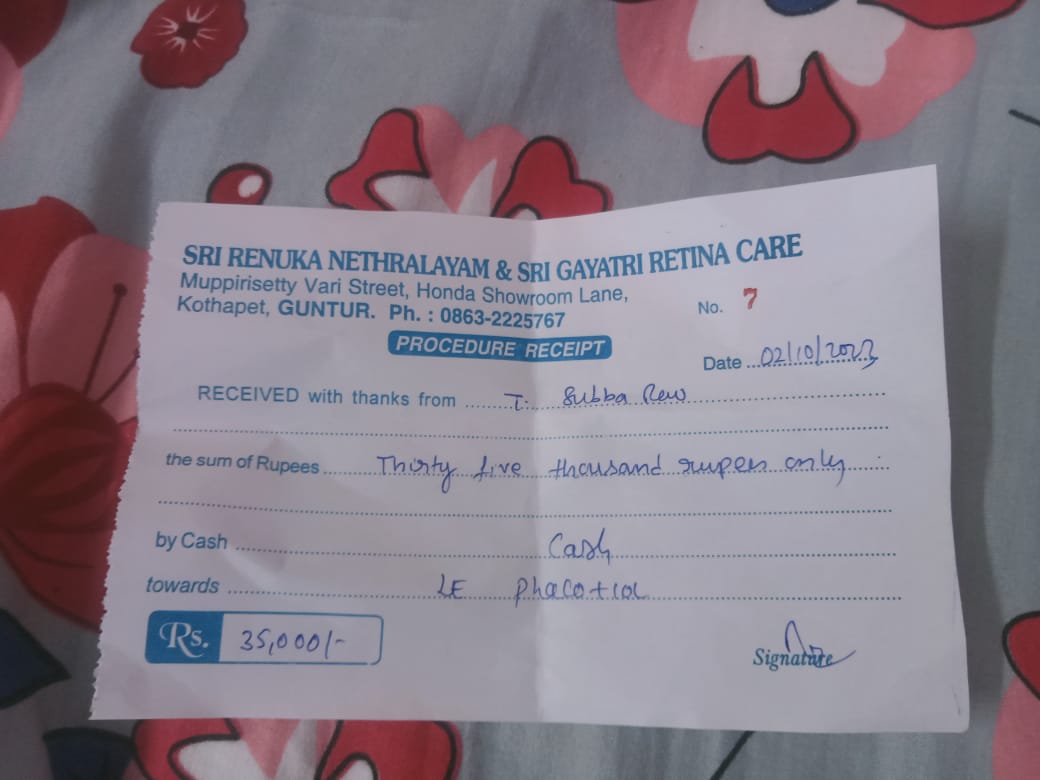 SRI RENUKA NETHRALAYAM & SRI GAYATRI RETINA CARE
Muppirisetty Vari Street, Honda Showroom Lane,
Kothapet, GUNTUR. Ph. : 0863-2225767
No. 7
PROCEDURE RECEIPT
Date 02/10/2023
RECEIVED with thanks from T. Subba Rao
the sum of Rupees Thirty five thousand rupees only
by Cash Cash
towards LE Phaco+IOL
Rs. 35,000/-
Signature